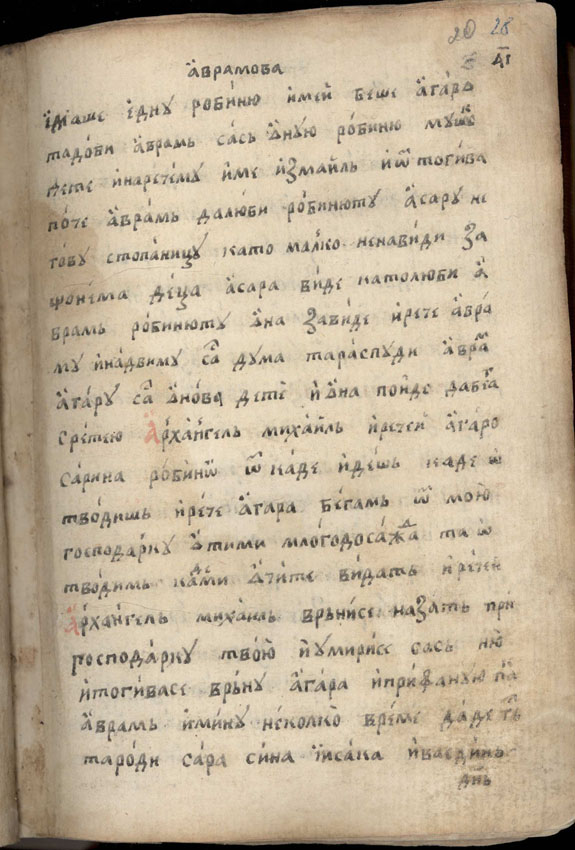 20 28
а҃і
а҆врамова
і҆маше є҆дну робиню и҆мей беше а҆гаръ
тадоби а҆врамь сасъ ѻ҆ную робиню мушко
дете и҆наретему и҆ме и҆змаиль и҆ѿ тогива
поче а҆врамь далюби робинюту а҆сару не
гову стопаницу като малко ненавиди за
фонема деца а҆сара виде католюби а҆
врамь робинюту ѻ҆на завиде и҆рече а҆вра
му и҆надвиму са дума тараспуди а҆врам
а҆гару са ѻ҆нова дете и҆ ѻ҆на пойде дабега
сретею а҆рхангель михаиль и҆речей а҆гаро
сарина робинѡ ѿ каде и҆дешь каде ѡ
тводишь и҆рече а҆гара бегамь ѿ мою
господарку ѻ҆тими млогодосажда та ѡ
тводимь кадеми ѻ҆чите видать и҆речей
а҆рхангель михаиль врьнисе назать при
господарку твою и҆умирисе сась ню
и҆тогивасе врьну а҆гара и҆прифаную па
а҆врамь и҆мину неколко време даде
тароди сара сина і҆сака и҆ваединь
днь